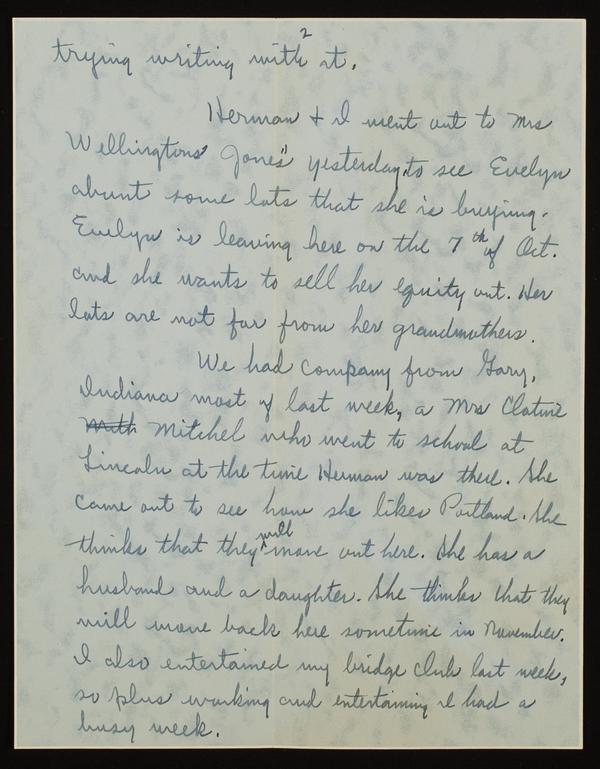 2
trying writing with it.
Herman + I went out to Mrs
Wellingtons' Jones" yesterday, to see Evelyn
abunt some lots that she is buying.
Evelyn is leaving here on the 7th of Oct.
and she wants to sell her equity out. Her
lots are not far from her grandmothers.
We had company from Gary,
Indiana most of last week, a Mrs
Mitchel who went to school at
Lincoln at the time Herman was there. She
came out to see how she likes Portland. She
thinks that they will move out here. She has a
husband and a daughter. She thinks that they
will move back here sometime in November.
I also entertained my bridge club last week,
so plus working and entertaining I had a
busy week.